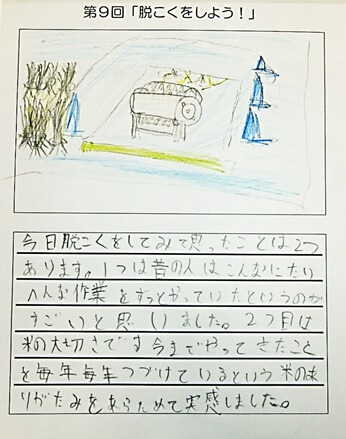 第9回「脱こくをしよう!」
今日脱こくをしてみて思ったことは2つ
あります。1つは昔の人はこんなにたい
へんな作業をずっとやっていたというのが
すごいと思いました。2つ目は
米の大切さです今までやってきたこと
を毎年毎年つづけているという米のあ
りがたみをあらためて実感しました。